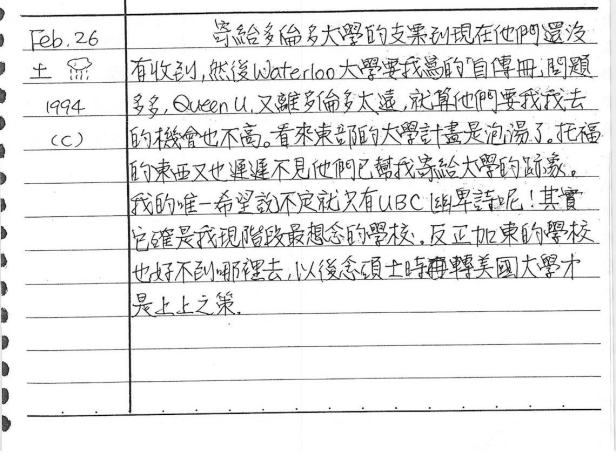 Feb. 26
土
1994
(C)
寄給多倫多大學的支票到現在他們還沒
有收到,然後Waterloo大學要我寫的"自傳冊"問題
多多, Queen U. 又離多倫多太遠,就算他們要我我去
的機會也不高。看來東部的大學計畫是泡湯了。托福
的東西又也遲遲不見他們已幫我寄給大學的跡象。
我的唯一希望說不定就只有UBC幽卑詩呢!其實
它確是我現階段最想念的學校。反正加東的學校
也好不到哪裡去,以後念碩士時再轉美國大學才
是上上之策.